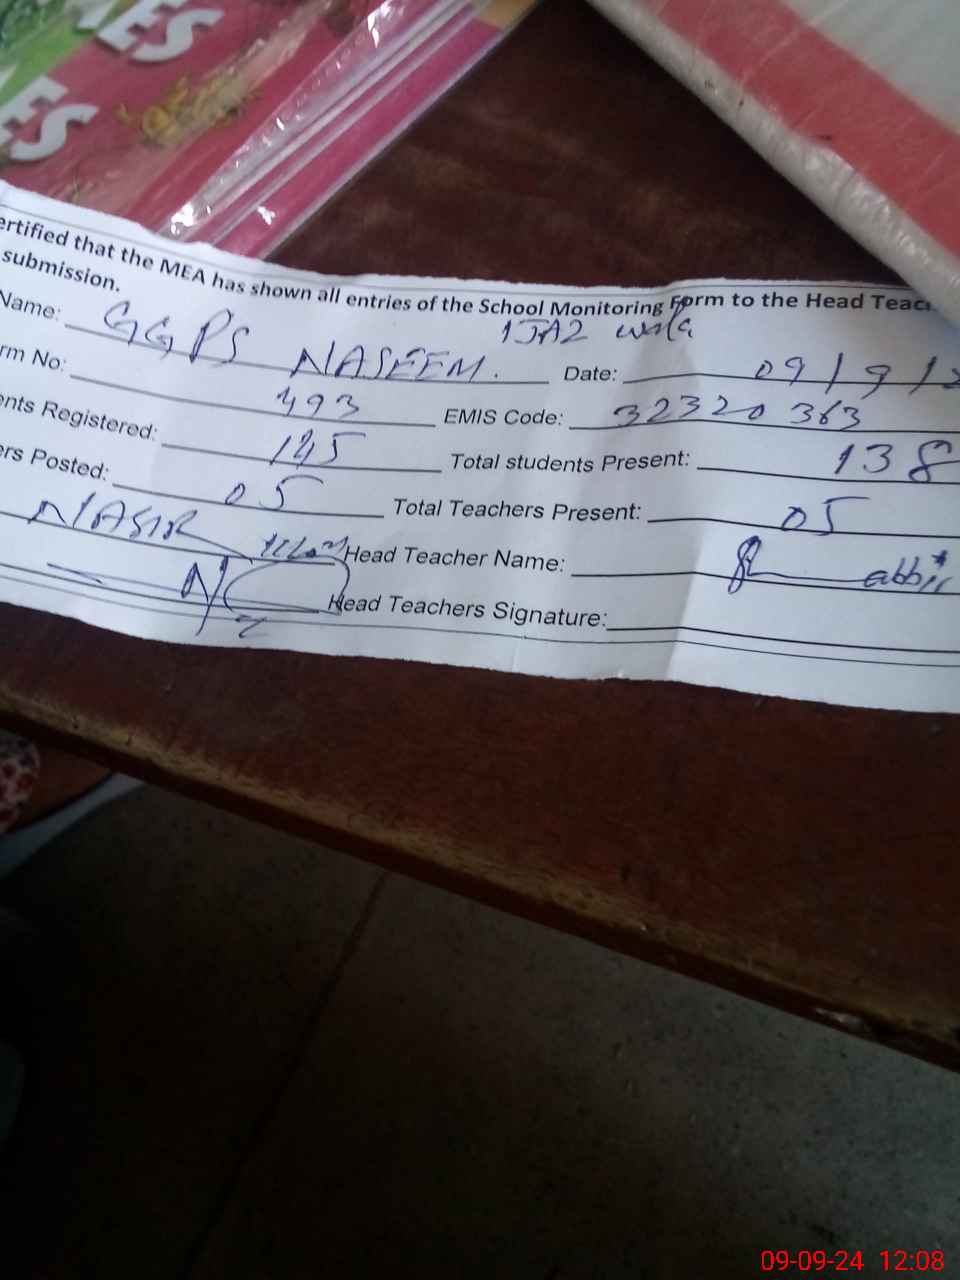 ES
ES
ertified that the MEA has shown all entries of the School Monitoring Form to the Head Teac
submission.
Name: GGPS NASEEM. IJAZ wala Date: 09/9/2
rm No: 493 EMIS Code: 32320363
ents Registered: 145 Total students Present: 138
ers Posted: 05 Total Teachers Present: 05
NASIR Head Teacher Name:
Head Teachers Signature:
09-09-24 12:08